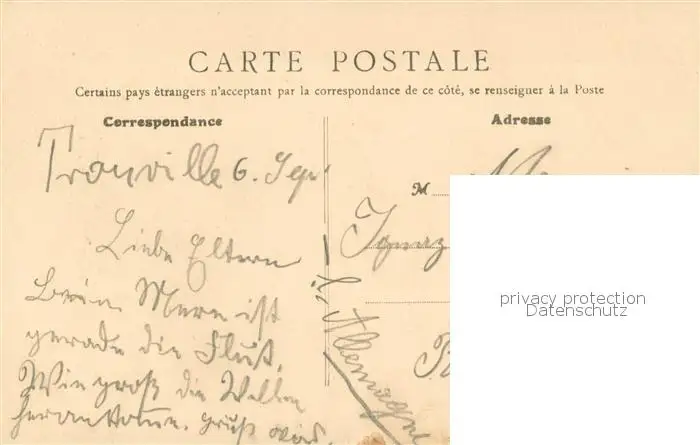 CARTE POSTALE
Certains pays étrangers n'acceptant par la correspondance de ce côté, se renseigner à la Poste
Correspondance
Adresse
Trouville 6. Sep.
M
Liebe Eltern
Ignaz
Meer ist
gerade die Flut.
Wie groß die Wellen
Allemagne
privacy protection
Datenschutz